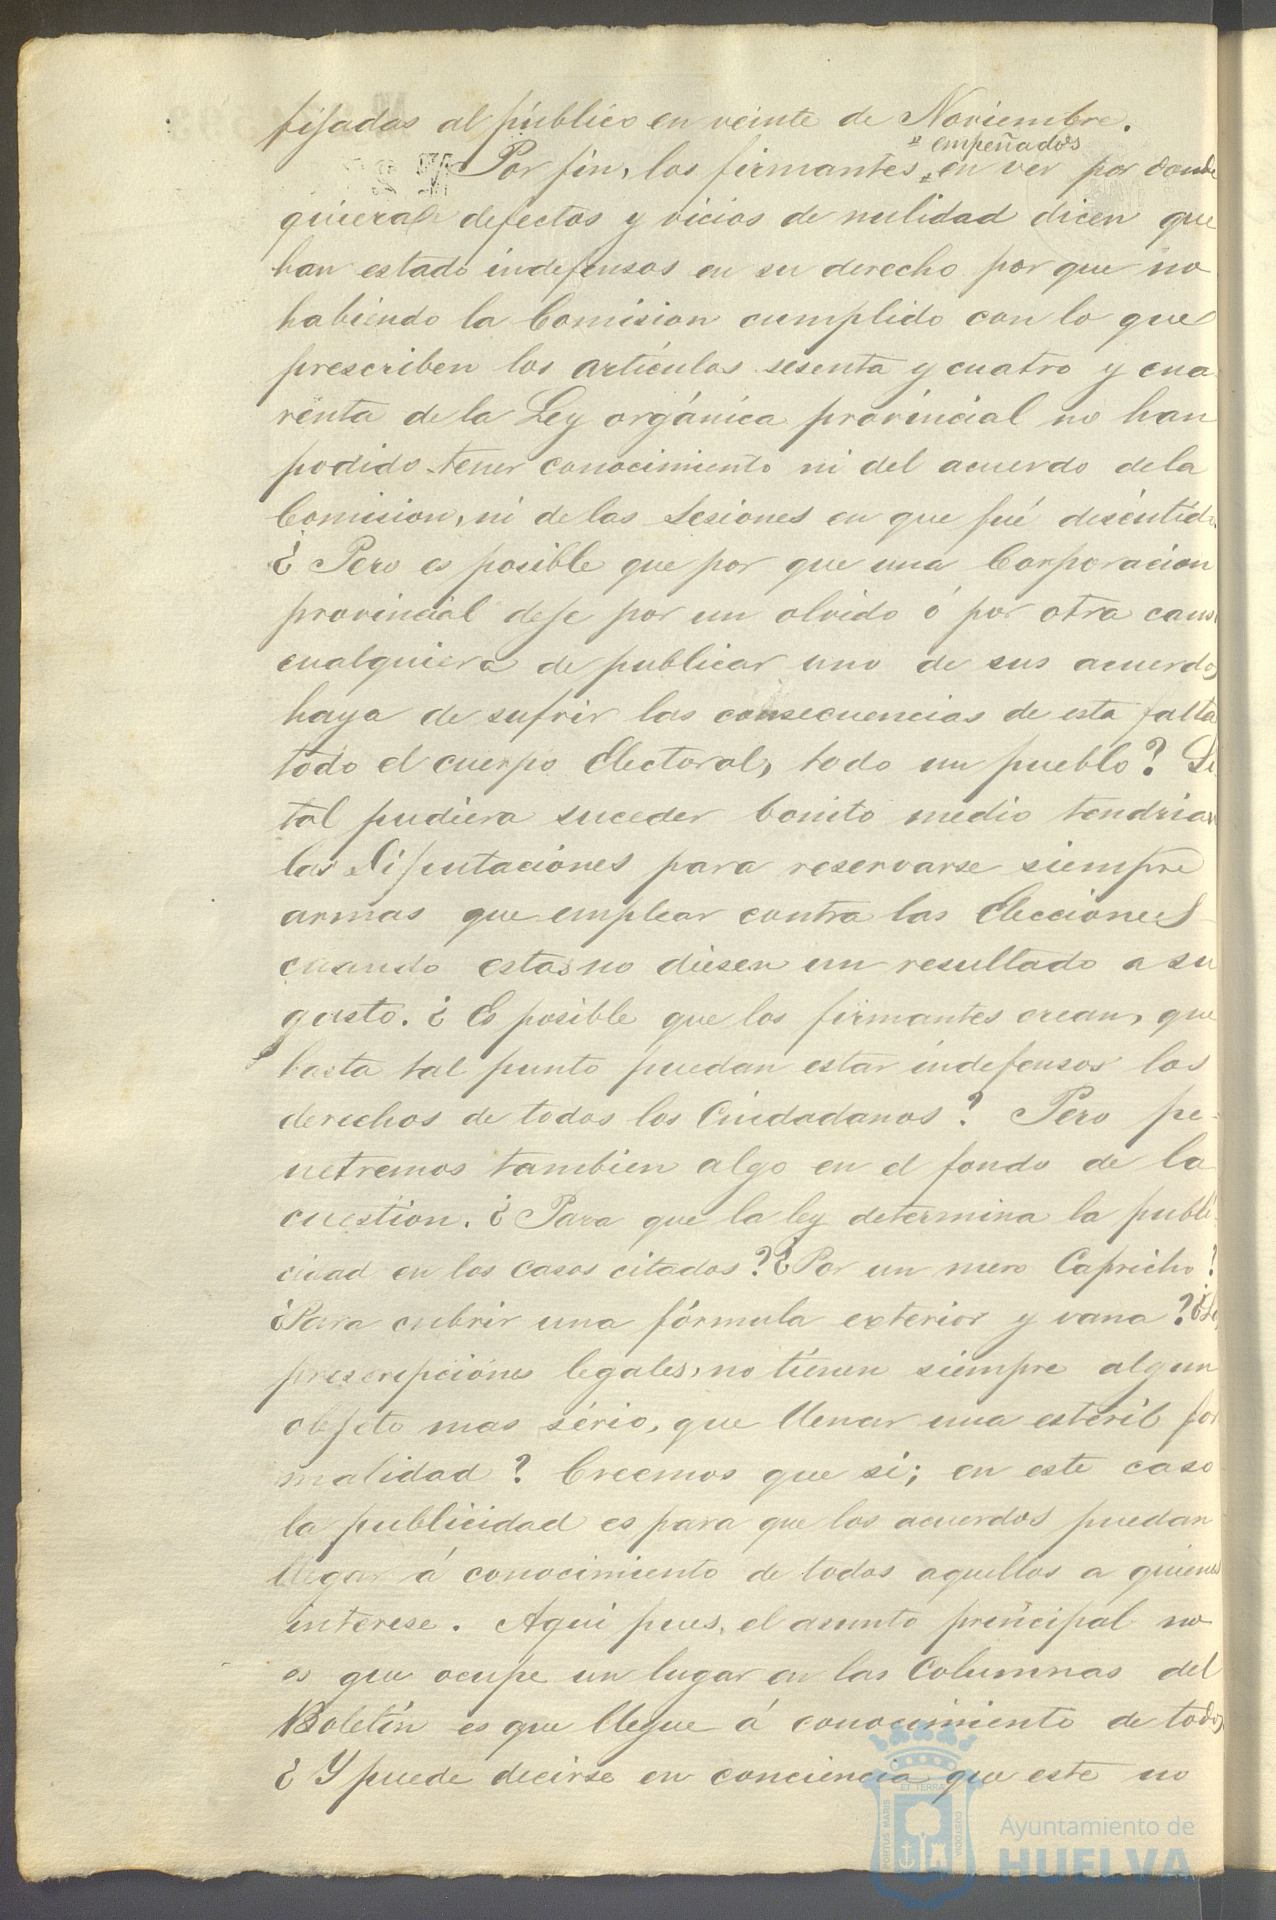 fijadas al público en veinte de Noviembre.
empeñados
Por fin, los firmantes, en ver por donde
quiera defectos y vicios de nulidad dicen que
han estado indefensos en su derecho por que no
habiendo la Comision cumplido con lo que
prescriben los artículos sesenta y cuatro y cua
renta de la Ley orgánica provincial no han
podido tener conocimiento ni del acuerdo de la
Comision, ni de las Sesiones en que fué discutido.
¿Pero es posible que por que una Corporacion
provincial deje por un olvido ó por otra causa
cualquiera de publicar uno de sus acuerdos,
haya de sufrir las consecuencias de esta falta
todo el cuerpo Electoral, todo un pueblo? Si
tal pudiera suceder bonito medio tendrian
las Diputaciones para reservarse siempre
armas que emplear contra las Elecciones
cuando estas no diesen un resultado a su
gusto. ¿Es posible que los firmantes crean, que
hasta tal punto puedan estar indefensos los
derechos de todos los Ciudadanos? Pero pe-
netremos tambien algo en el fondo de la
cuestion. ¿Para que la ley determina la publi-
cidad en los casos citados? ¿Por un mero Capricho?
¿Para cubrir una fórmula exterior y vana? ¿Las
prescripciones legales, no tienen siempre algun
objeto mas sério, que llenar una esteril for
malidad? Creemos que si; en este caso
la publicidad es para que los acuerdos puedan
llegar á conocimiento de todos aquellos a quienes
interese. Aqui pues, el asunto principal no
es que ocupe un lugar en las Columnas del
Boletín es que llegue á conocimiento de todos,
¿Y puede decirse en conciencia que este no
PORTUS MARIS ET TERRÆ CUSTODIA
Ayuntamiento de
HUELVA